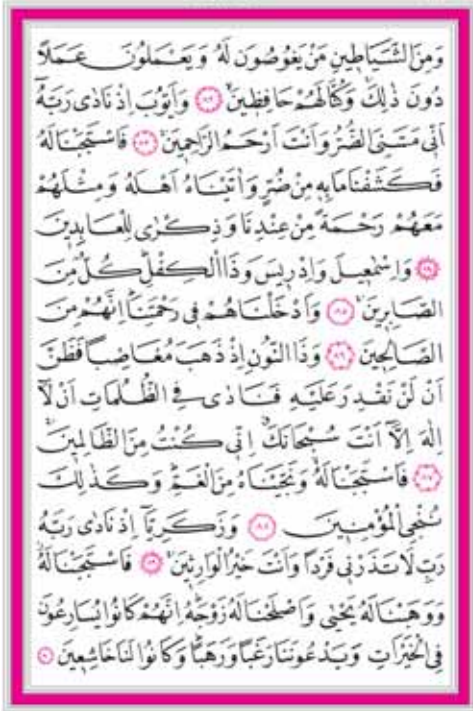 وَمِنَ الشَّيَاطِينِ مَنْ يَغُوصُونَ لَهُ وَيَعْمَلُونَ عَمَلًا
دُونَ ذٰلِكَ وَكُنَّا لَهُمْ حَافِظِينَ ﴿٨٢﴾ وَاَيُّوبَ اِذْ نَادٰى رَبَّهُٓ
اَنِّى مَسَّنِىَ الضُّرُّ وَاَنْتَ اَرْحَمُ الرَّاحِمِينَ ﴿٨٣﴾ فَاسْتَجَبْنَا لَهُ
فَكَشَفْنَا مَا بِهِ مِنْ ضُرٍّ وَاٰتَيْنَاهُ اَهْلَهُ وَمِثْلَهُمْ
مَعَهُمْ رَحْمَةً مِنْ عِنْدِنَا وَذِكْرٰى لِلْعَابِدِينَ
﴿٨٤﴾ وَاِسْمٰعِيلَ وَاِدْرِيسَ وَذَا الْكِفْلِ كُلٌّ مِنَ
الصَّابِرِينَ ﴿٨٥﴾ وَاَدْخَلْنَاهُمْ فِى رَحْمَتِنَا اِنَّهُمْ مِنَ
الصَّالِحِينَ ﴿٨٦﴾ وَذَا النُّونِ اِذْ ذَهَبَ مُغَاضِبًا فَظَنَّ
اَنْ لَنْ نَقْدِرَ عَلَيْهِ فَنَادٰى فِى الظُّلُمَاتِ اَنْ لَٓا
اِلٰهَ اِلَّٓا اَنْتَ سُبْحَانَكَ اِنِّى كُنْتُ مِنَ الظَّالِمِينَ
﴿٨٧﴾ فَاسْتَجَبْنَا لَهُ وَنَجَّيْنَاهُ مِنَ الْغَمِّ وَكَذٰلِكَ
نُنْجِى الْمُؤْمِنِينَ ﴿٨٨﴾ وَزَكَرِيَّٓا اِذْ نَادٰى رَبَّهُ
رَبِّ لَا تَذَرْنِى فَرْدًا وَاَنْتَ خَيْرُ الْوَارِثِينَ ﴿٨٩﴾ فَاسْتَجَبْنَا لَهُ
وَوَهَبْنَا لَهُ يَحْيٰى وَاَصْلَحْنَا لَهُ زَوْجَهُ اِنَّهُمْ كَانُوا يُسَارِعُونَ
فِى الْخَيْرَاتِ وَيَدْعُونَنَا رَغَبًا وَرَهَبًا وَكَانُوا لَنَا خَاشِعِينَ ﴿٩٠﴾